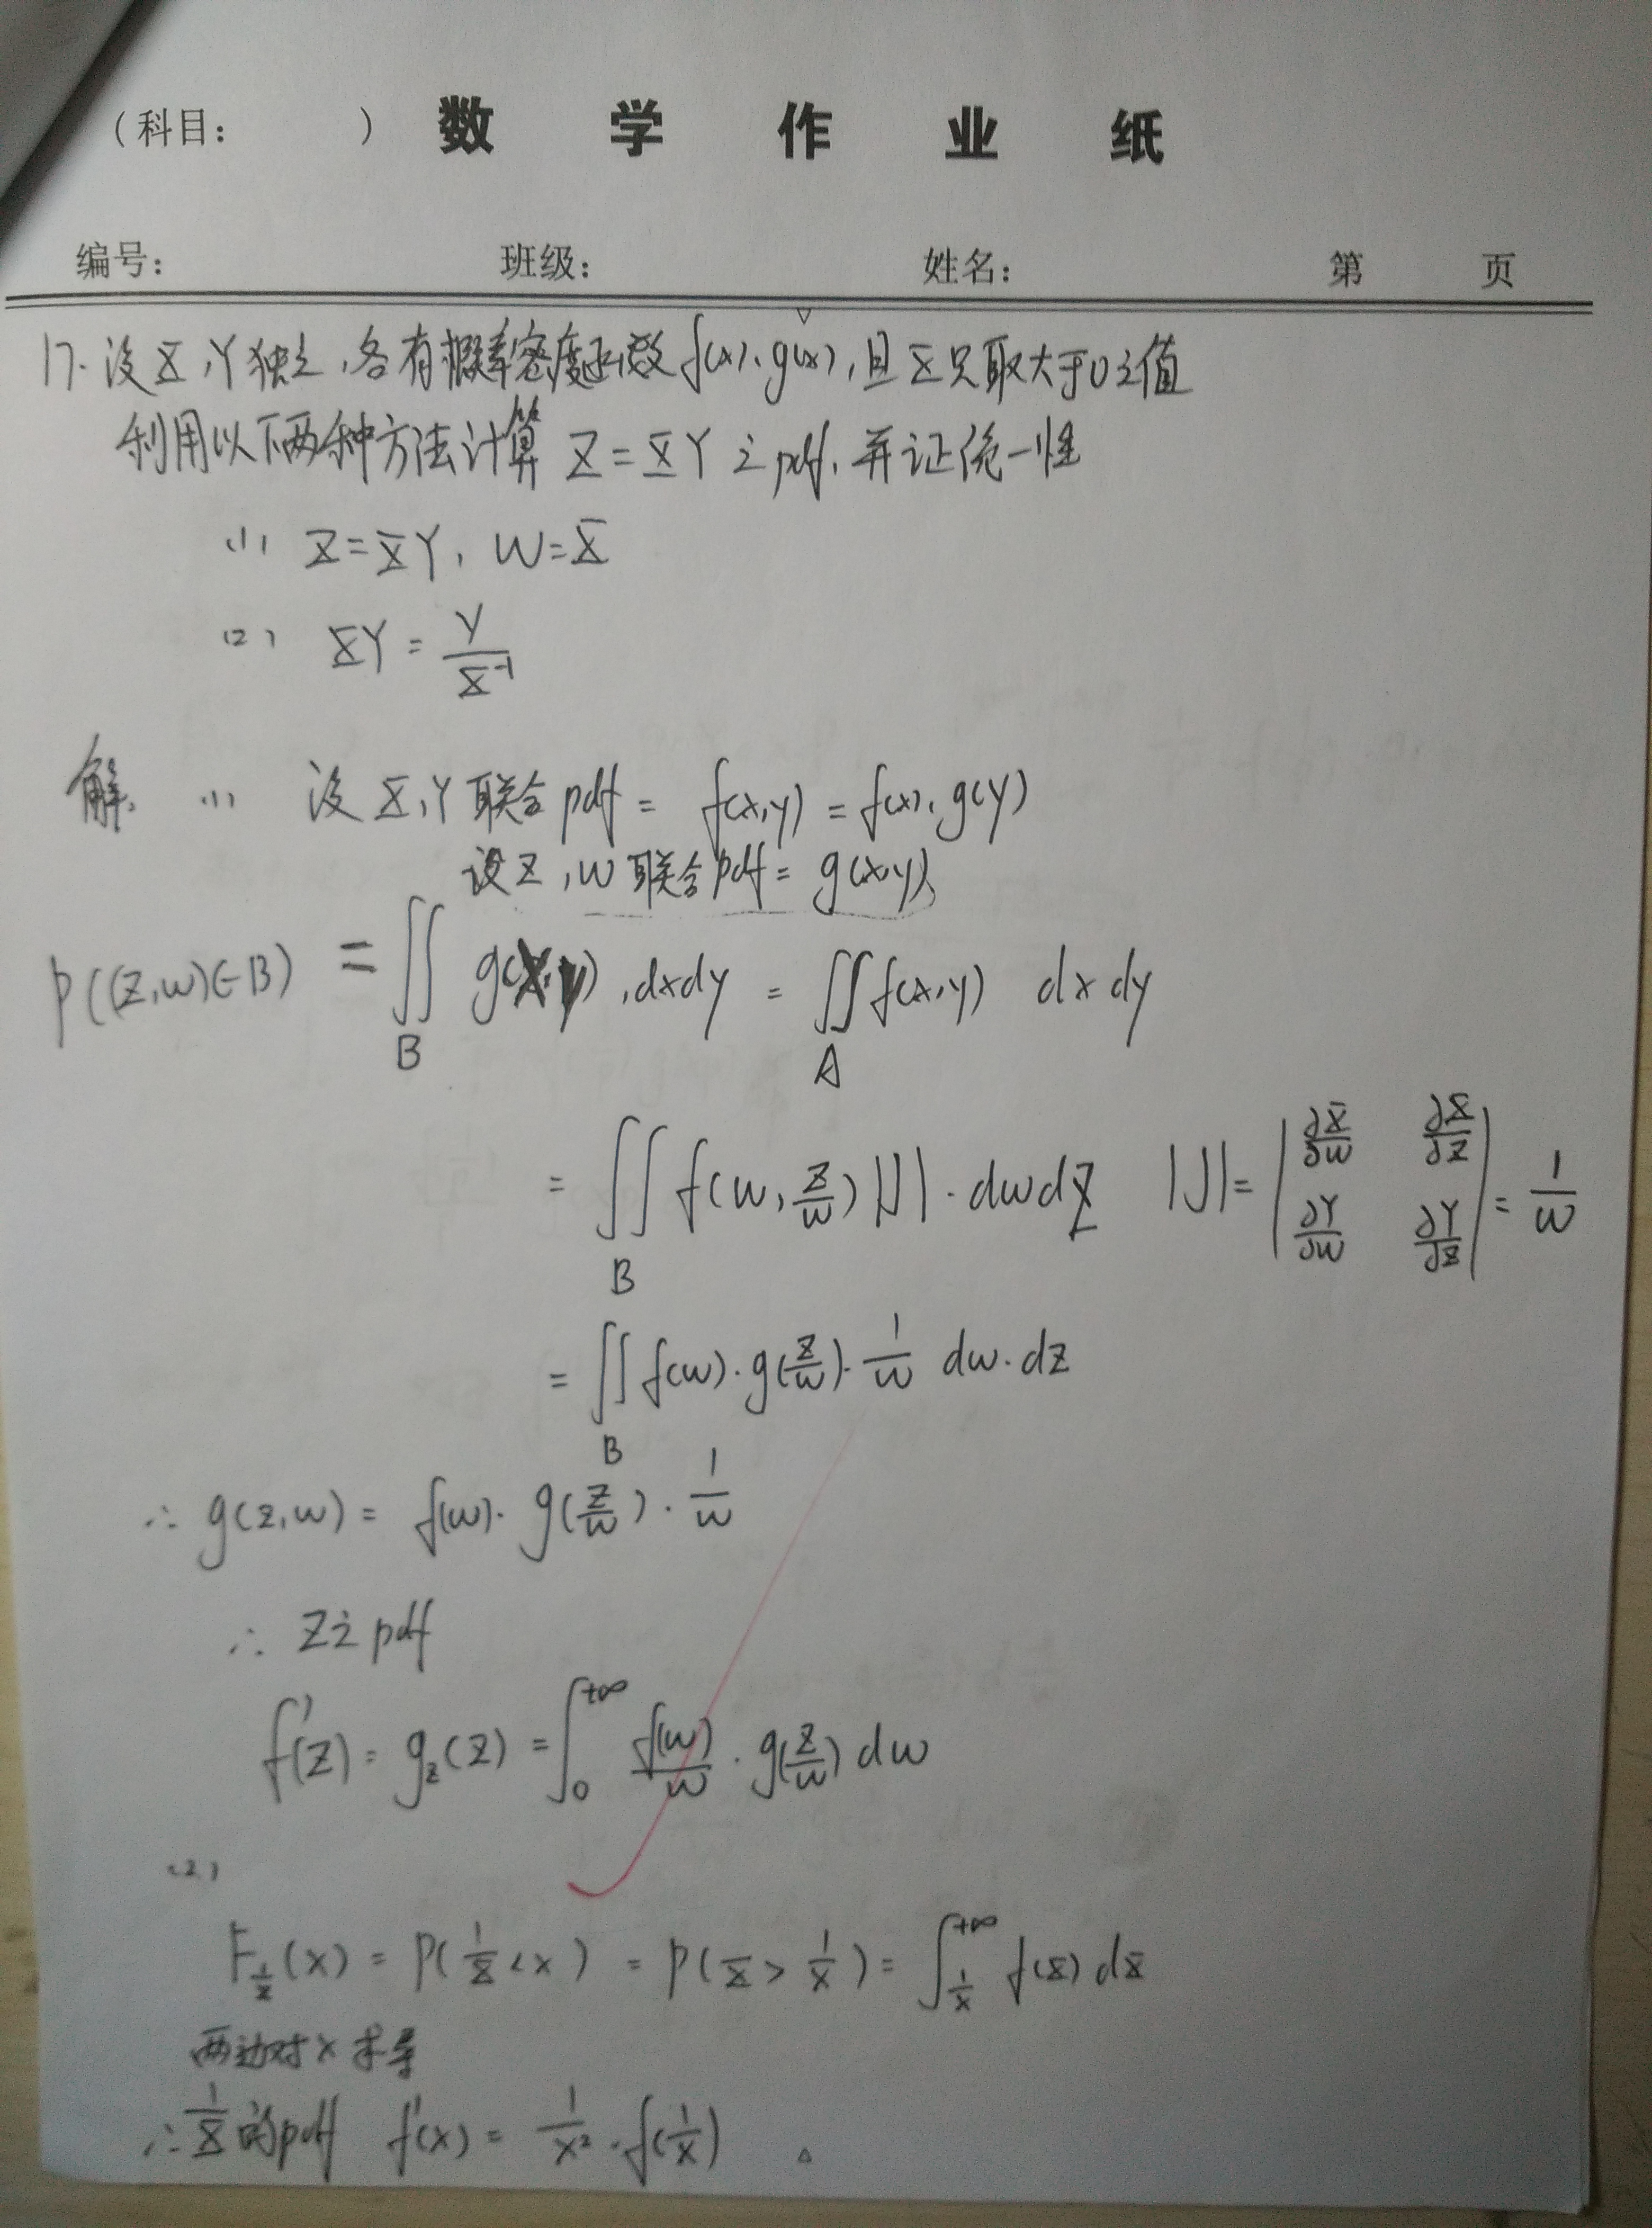 （科目： ） 数 学 作 业 纸
编号： 班级： 姓名： 第 页
17. 设X,Y独立,各有概率密度函数f(x),g(x),且X只取大于0之值
利用以下两种方法计算 Z=XY之pdf,并证统一性
(1) Z=XY, W=X
(2) XY = Y/X⁻¹
解. (1) 设X,Y联合pdf = f(x,y) = f(x).g(y)
设Z,W联合pdf = g(x,y)
P((Z,W)∈B) = ∬_B g(x,y).dxdy = ∬_A f(x,y) dxdy
= ∬_B f(w, z/w)|J|·dwdz |J| = |∂X/∂w ∂X/∂z; ∂Y/∂w ∂Y/∂z| = 1/w
= ∬_B f(w)·g(z/w)·1/w dw·dz
∴ g(z,w) = f(w)·g(z/w)·1/w
∴ Z之pdf
f'(z) = g_z(z) = ∫_0^{+∞} f(w)/w · g(z/w) dw
(2)
F_{1/X}(x) = P(1/X < x) = P(X > 1/x) = ∫_{1/x}^{+∞} f(x) dx
两边对x求导
∴ 1/X 的pdf f'(x) = 1/x² · f(1/x) 。